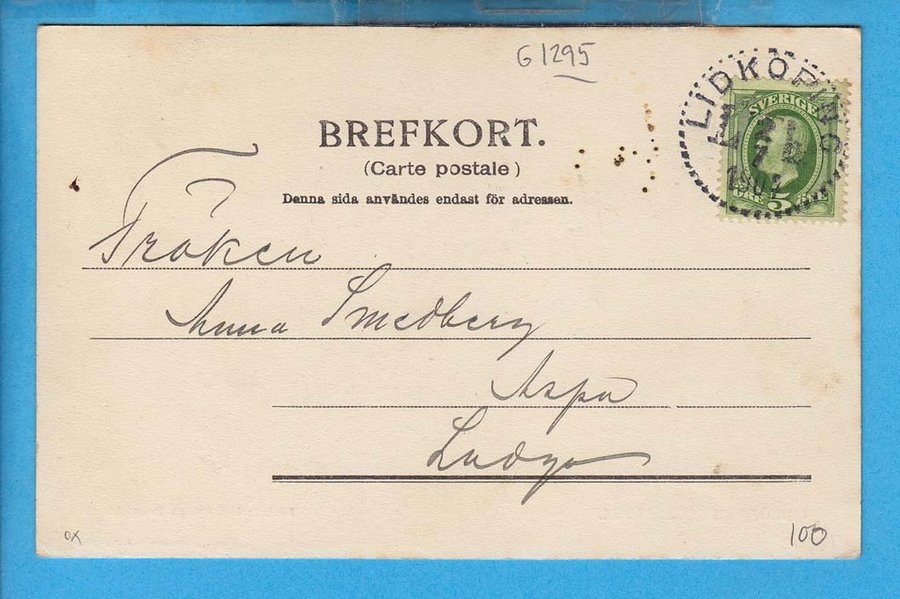 G 1295
LIDKÖPING
SVERIGE
21
7
1902
5
BREFKORT.
(Carte postale)
Denna sida användes endast för adressen.
Fröken
Anna Smedberg
Aspa
Ludgo
OX
100